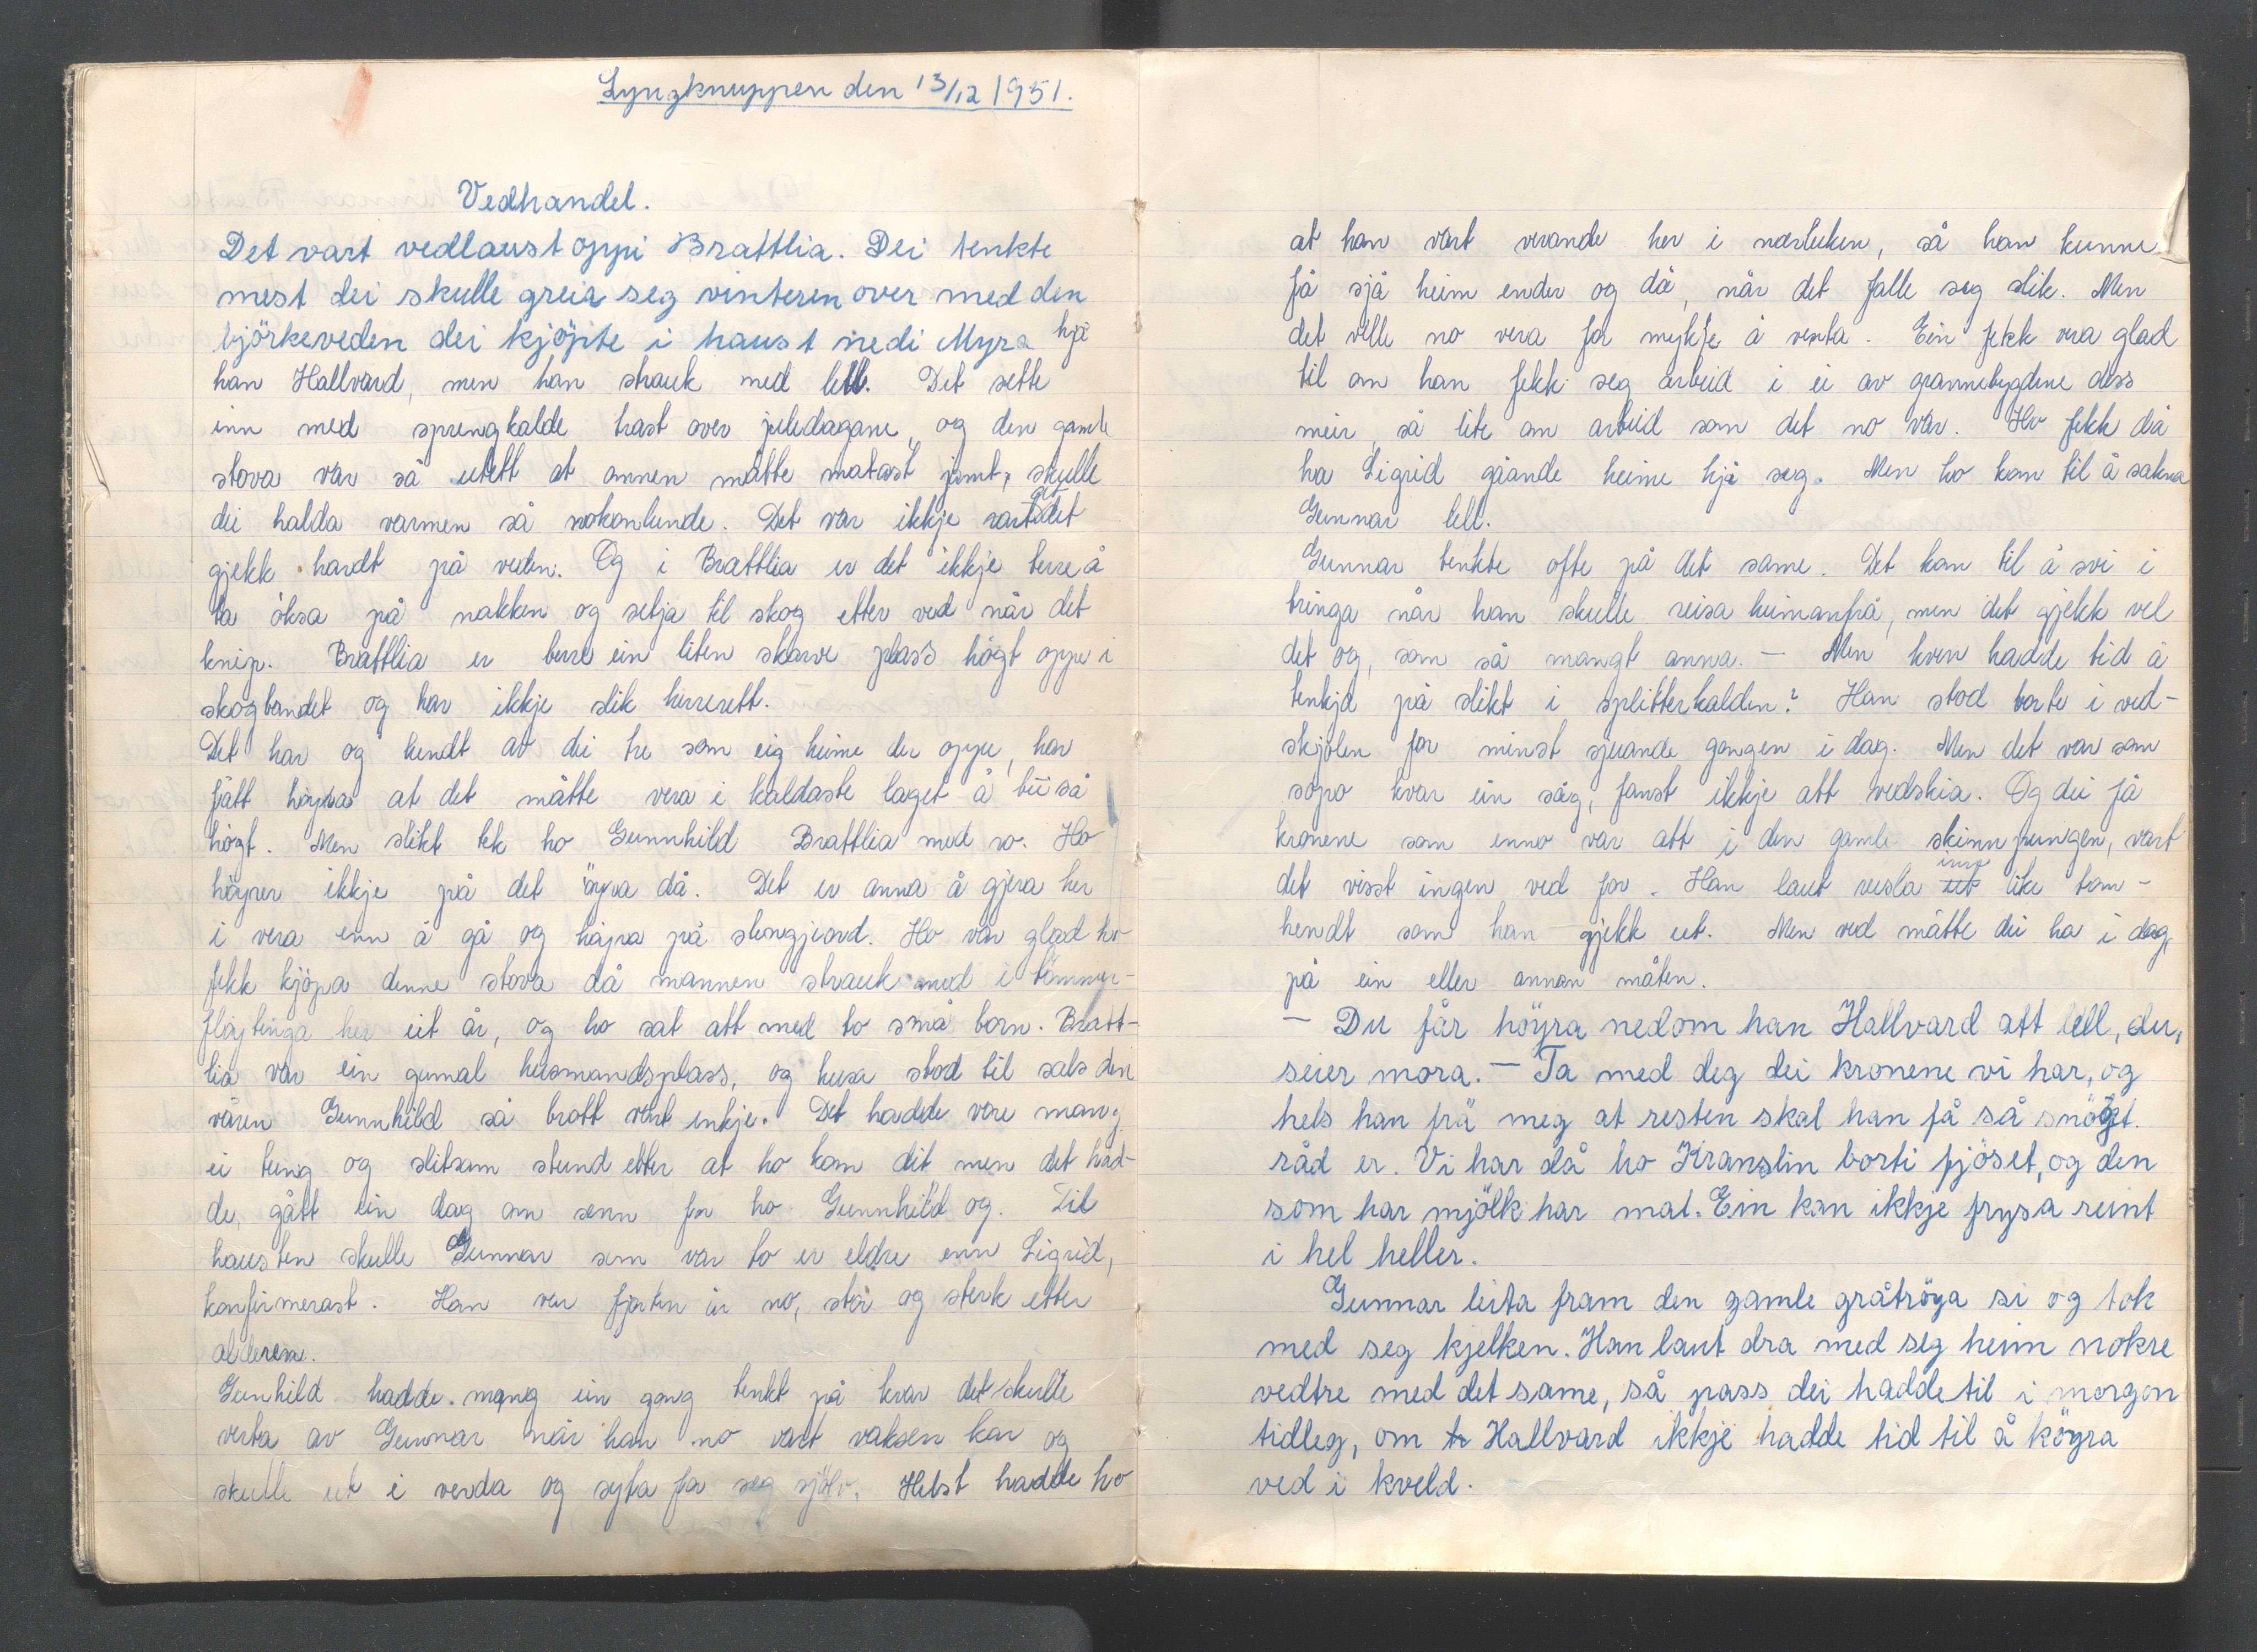 Lyngknuppen den 13/12 1951.
Vedhandel.
Det vart vedlaust oppi Brattlia. Dei tenkte
mest dei skulle greia seg vinteren over med den
björkeveden dei kjöpte i haust nedi Myra hjå
han Hallvard, men han strauk med lell. Det sette
inn med sprengkalde trast over juledagane, og den gamle
stova var så utett at omnen måtte matast jamt, skulle
dei halda varmen så nokonlunde. Det var ikkje rart at det
gjekk hardt på veden. Og i Brattlia er det ikkje berre å
ta öksa på nakken og setja til skog etter ved når det
knip. Brattlia er berre ein liten skarve plass högt oppe i
skogbandet og har ikkje slik herrerett.
Det har og hendt at dei tre som eig heime der oppe, har
fått höyra at det måtte vera i kaldaste laget å bu så
högt. Men slikt tek ho Gunnhild Brattlia med ro. Ho
höyrer ikkje på det öyra då. Det er anna å gjera her
i vera enn å gå og höyra på slengjeord. Ho var glad ho
fekk kjöpa denne stova då mannen strauk med i tömmer-
flöytinga her eit år, og ho sat att med to små born. Bratt-
lia var ein gamal husmandsplass, og husa stod til sals den
våren Gunnhild så brått vart enkje. Det hadde vore mang
ei tung og slitsam stund etter at ho kom dit men det had-
de gått ein dag om senn for ho Gunnhild og. Til
hausten skulle Gunnar som var to år eldre enn Sigrid,
konfirmerast. Han var fjorten år no, stor og sterk etter
alderen.
Gunhild hadde mang ein gong tenkt på kvar det skulle
verta av Gunnar når han no vart vaksen kar og
skulle ut i verda og syta for seg sjölv. Helst hadde ho
at han vart verande her i nærleiken, så han kunne
få sjå heim ender og då, når det falle seg slik. Men
det ville no vera for mykje å venta. Ein fekk vera glad
til om han fekk seg arbeid i ei av grannebygdene dess
meir, så lite om arbeid som det no var. Ho fekk då
ha Sigrid gåande heime hjå seg. Men ho kom til å sakna
Gunnar lell.
Gunnar tenkte ofte på det same. Det kom til å svi i
bringa når han skulle reisa heimanfrå, men det gjekk vel
det og, som så mangt anna. - Men kven hadde tid å
tenkja på slikt i splitterkalden? Han stod borte i ved-
skjölen for minst sjuande gongen i dag. Men det var som
sopo kvar ein såg, fanst ikkje att vedskia. Og dei få
kronene som enno var att i den gamle skinnpungen, vart
det visst ingen ved for. Han laut rusla ut inn like tom-
hendt som han gjekk ut. Men ved måtte dei ha i dag,
på ein eller annan måten.
- Du får höyra nedom han Hallvard att lell, du,
seier mora. - Ta med deg dei kronene vi har, og
hels han frå meg at resten skal han få så snögt.
råd er. Vi har då ho Kranslin borti fjöset, og den
som har mjölk har mat. Ein kan ikkje frysa reint
i hel heller.
Gunnar leita fram den gamle gråtröya si og tok
med seg kjelken. Han laut dra med seg heim nokre
vedtre med det same, så pass dei hadde til i morgon
tidleg, om Hallvard ikkje hadde tid til å köyra
ved i kveld.